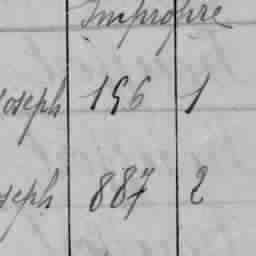 Impropre
Joseph 196 1
Joseph 887 2